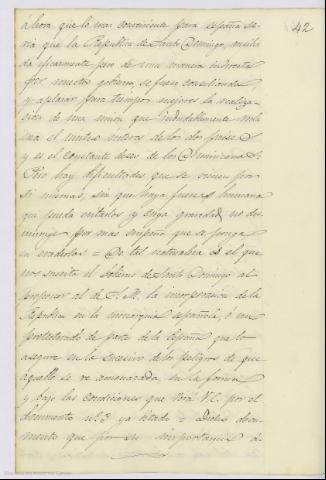 42
ahora que lo mas conveniente para españa se-
ria que la Republica de Santo Domingo, auxilia
da eficazmente pero de una manera indirecta
por nuestro gobierno, se fuese consolidando,
y aplazar para tiempos mejores la realiza-
cion de una union que indudablemente recla
ma el mutuo interes de los dos paises
y es el constante deseo de los Dominicanos.
Pero hay dificultades que se vienen por
si mismas, sin que haya fuerza humana
que pueda evitarlas y cuya gravedad no dis
minuye por mas empeño que se ponga
en evadirlas = De tal naturaleza es el que
nos suscita el gobierno de Santo Domingo al
proponer al de S. M. la incorporacion de la
Republica en la monarquia española, ó un
protectorado de parte de la España que lo
asegure en lo sucesivo de los peligros de que
aquella se ve amenazada, en la forma
y bajo las condiciones que verá V. E. por el
documento nº 3 ya citado = Dicho docu-
mento que por su importancia é